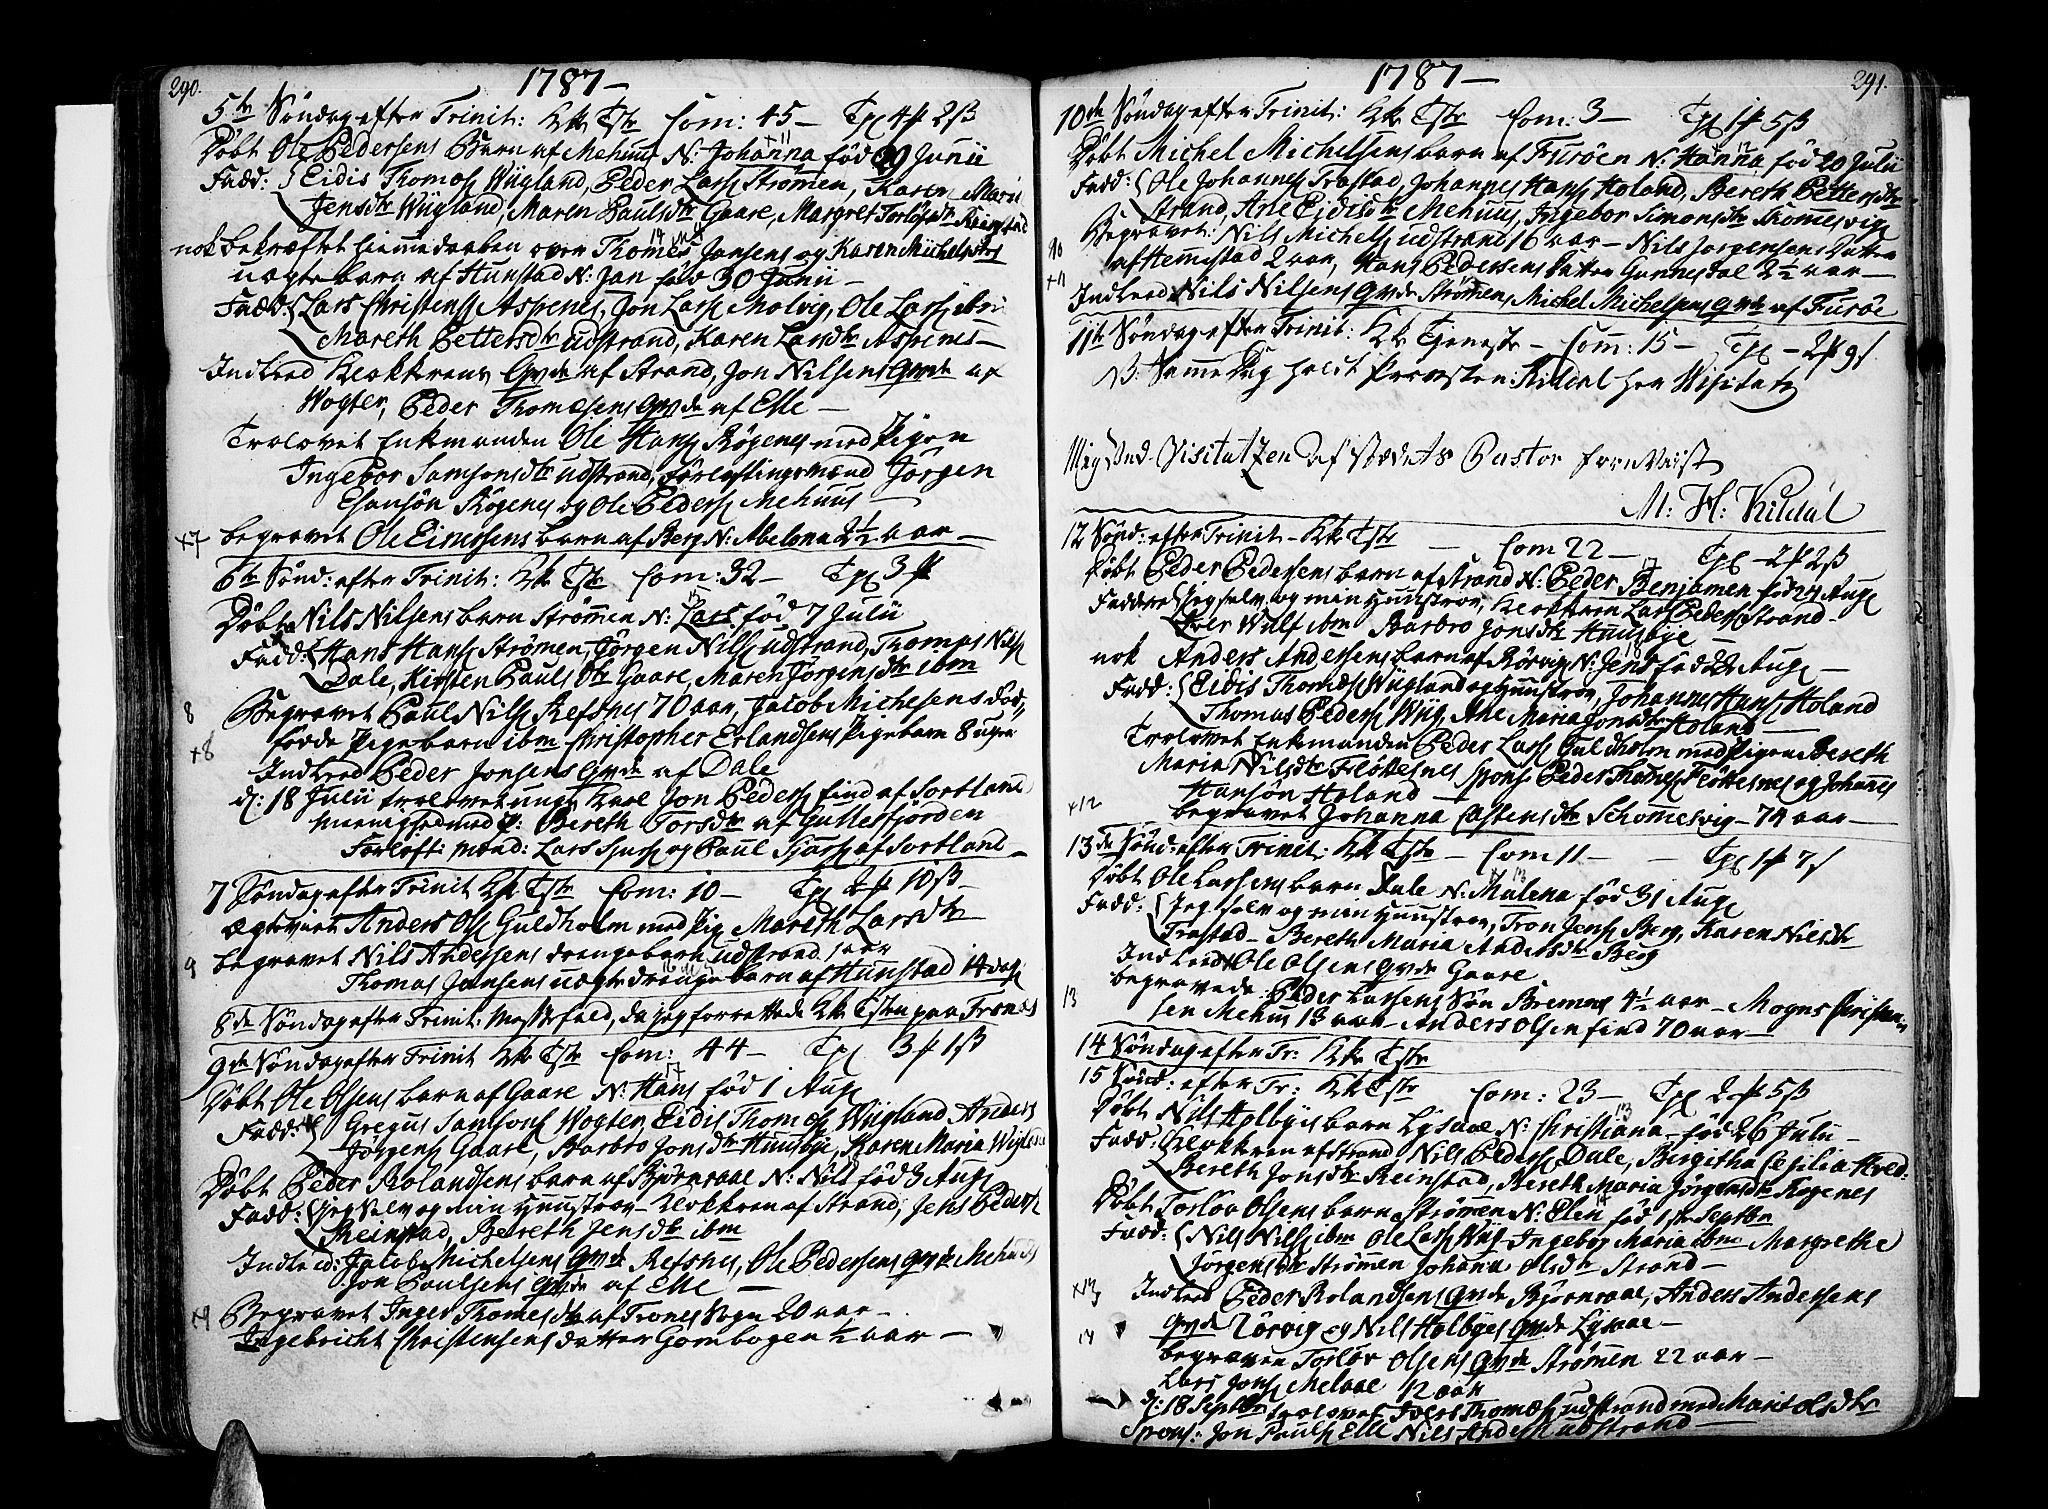 290.
1787 —
5te Søndag efter Trinit: Kk Tste Com: 45 — Tpl 4 2ß
Døbt Ole Pedersens Barn af Mehuus N: Johanna fød 29 Junii
Fadd: Eidis Thomes Wiigland, Peder Lars Strømen, Karen Maria
Jensdtr Wiigland, Maren Paulsdtr Gaare, Margret Torløfsdtr Reinstad
nok bekræftet hiemmedaaben over Thomes Jansens og Karen Michelsdtrs
uægte barn af Hunstad N: Jan fød 30 Junii —
Fadd: Lars Christens Aspenes, Jon Lars Molvig, Ole Lars ibm
Mareth Pettersdtr udstrand, Karen Larsdtr Aspenes —
Indleed Klokkerens Qvde af Strand, Jon Nilsens Qvde af
Wogter, Peder Thomesens Qvde af Elle —
Trolovet Enkmanden Ole Hans Røgenes med Pigen
Ingebor Samsonsdtr udstrand, Forløftingsmænd Jørgen
Esansøn Røgenes og Ole Peders Mehuus
+7 begravet Ole Einersens barn af Berg N: Abelona 2½ aar —
6te Sønd: efter Trinit: Kk Tste Com: 32 — Tpl 3
Døbt Nils Nilsens barn Strømen N: Lars fød 7 Julii
Fadd: Hans Hans Strømen, Jørgen Nils udstrand, Thomas Nils
Dale, Kirsten Pauls dtr Gaare, Maren Jørgensdtr ibm
8 Begravet Paul Nils Refsnes 70 aar, Jacob Michelsens død¬
+8 fødde Pigebarn ibm Christopher Erlandsens Pigebarn 8 uger
Indleed Peder Jonsens Qvde af Dale
d: 18 Julii trolovet ungkarl Jon Peders find af Sortland
Meenighed med P: Bereth Torsdtr af Gullesfjorden
Forløft: mænd: Lars Sjurs og Paul Sjurs af Sortland —
7 Søndag efter Trinit Kk Tste Com: 10 — Tpl 10ß —
Ægteviet Anders Ols Guldholm med Pig Mareth Larsdtr
9 begravet Nils Andersens drengebarn udstrand
Thomas Jansens uægte drenge barn af Hunstad 14 dag
8de Søndag efter Trinit: Messefald, da jeg forrettede Kk Tsten paa Trones
9de Søndag efter Trinit Kk Tste Com: 44 — Tpl 3 1ß
Døbt Ole Olsens barn af Gaare N: Hans fød 1 Aug
Fadd: Gregus Samsons Wogter, Eidis Thomes Wiigland Anders
Jørgens Gaare, Barbro Jonsdtr Huusbye, Karen Maria Wigland
Døbt Peder Rolandsens barn af Bjørnraae N: Nils fød 3 Aug
Fadd: jeg selv og min Huustrov — Klokkeren af Strand, Jens Peders
Reinstad, Bereth Jensdtr ibm
Indleed: Jacob Michelsens Qvde Refsnes, Ole Pedersens Qvde Mehuus
Jon Paulsens Qvde af Elle —
+9 Begravet Inger Thomesdtr af Trones Sogn 20 aar —
Ingebricht Christensens datter Gombogen ½ aar —
291.
1787 —
10de Søndag efter Trinit: Kk Tste Com: 3 — Tpl 1 5ß
Døbt Michel Michelsens barn af Furøen N: Hanna fød 20 Julii
Fadd: Ole Johannes Trastad, Johannes Hans Holand, Bereth Pettersdtr
Strand, Ane Eidisdtr Mehuus, Ingebor Simonsdtr Thomesvig
10 Begravet: Nils Michels udstrands 6 aar — Nils Jørgensens datter
+11 af Hemmestad 2 aar, Hans Pedersens datter Gunnesdal 2½ aar —
Indleed Nils Nilsens Qvde Strømen, Michel Michelsens Qvde af Furøe
11te Søndag efter Trinit: Kk Tjeneste — Com: 15 — Tpl — 2 9ß
NB: Samme Dag holdt Provsten: Kildal her Visitatz
Ved Visitatzen af stædets Pastor forevist
M. H: Kildal
12 Sønd: efter Trinit — Kk Tste — Com 22 — Tpl — 2 2ß
Døbt Peder Pedersens barn af Strand N: Peder Benjamen fød 24 Aug
Faddre: jeg selv og min Huustrov, Klokkeren Lars Peders Strand —
Iver Wulf ibm Barbro Jonsdtr Huusbye —
nok Anders Andersens barn af Rørvig N: Jens fød 22 Aug —
Fadd: Eidis Thomes Wiigland og Huustrov, Johannes Hans Holand
Thomas Peders Wiig, Ane Maria Jonsdtr Holand —
Trolovet Enkmanden Peder Lars Guldholm med Pigen Bereth
Maria Nilsdtr Fløttesnes Spons Peder Thomes Fløttesnes og Johannes
Hansøn Holand —
+12 begravet Johanna Castensdtr Schomesvig — 74 aar —
13de Sønd: efter Trinit: Kk Tste — Com 11 — Tpl 1 7ß
Døbt Ole Larsens barn Dale N: Malena fød 31 Aug
Fadd: Jeg selv og min Huustrov, Tron Jens Berg, Karen Nilsdtr
Trastad — Bereth Maria Andersdtr Berg
Indleed Ole Olsens Qvde Gaare
13 begravede Peder Larsens Søn Bremnes 4½ aar — Mogns Christen¬
sen Mehus 13 aar — Anders Olsen find 70 aar —
14 Søndag efter Tr: Kk Tste
15 Sønd: efter Tr: Kk Tste Com: 23 — Tpl 2 5ß
Døbt Nils Holbyes barn Lysaae N: Christiana — fød 26 Julii —
Fadd: Klokkeren af Strand Nils Peders Dale, Bergitha Cecilia Hved:
Bereth Jonsdtr Reinstad, Bereth Maria Jørgensdtr Røgenes
Døbt Torløv Olsens barn Strømen N: Elen fød 1ste Septbr
Fadd: Nils Nils ibm Ole Lars Wiig Ingebor Maria ibm Margrethe
Jørgensdtr Strømen Johana Olsdtr Strand —
+13 Indleed Peder Rolandsens Qvde Bjørnraae, Anders Andersens
Qvde Rørvig og Nils Holbyes Qvde Lysaae —
14 begraven Torløv Olsens Qvde Strømen 22 aar —
Lars Jons Melaae 12 aar
d: 18 Septbr trolovet Thomes udstrand med Marit Olsdtr
Spons: Jon Pauls Elle Nils Anders udstrand —